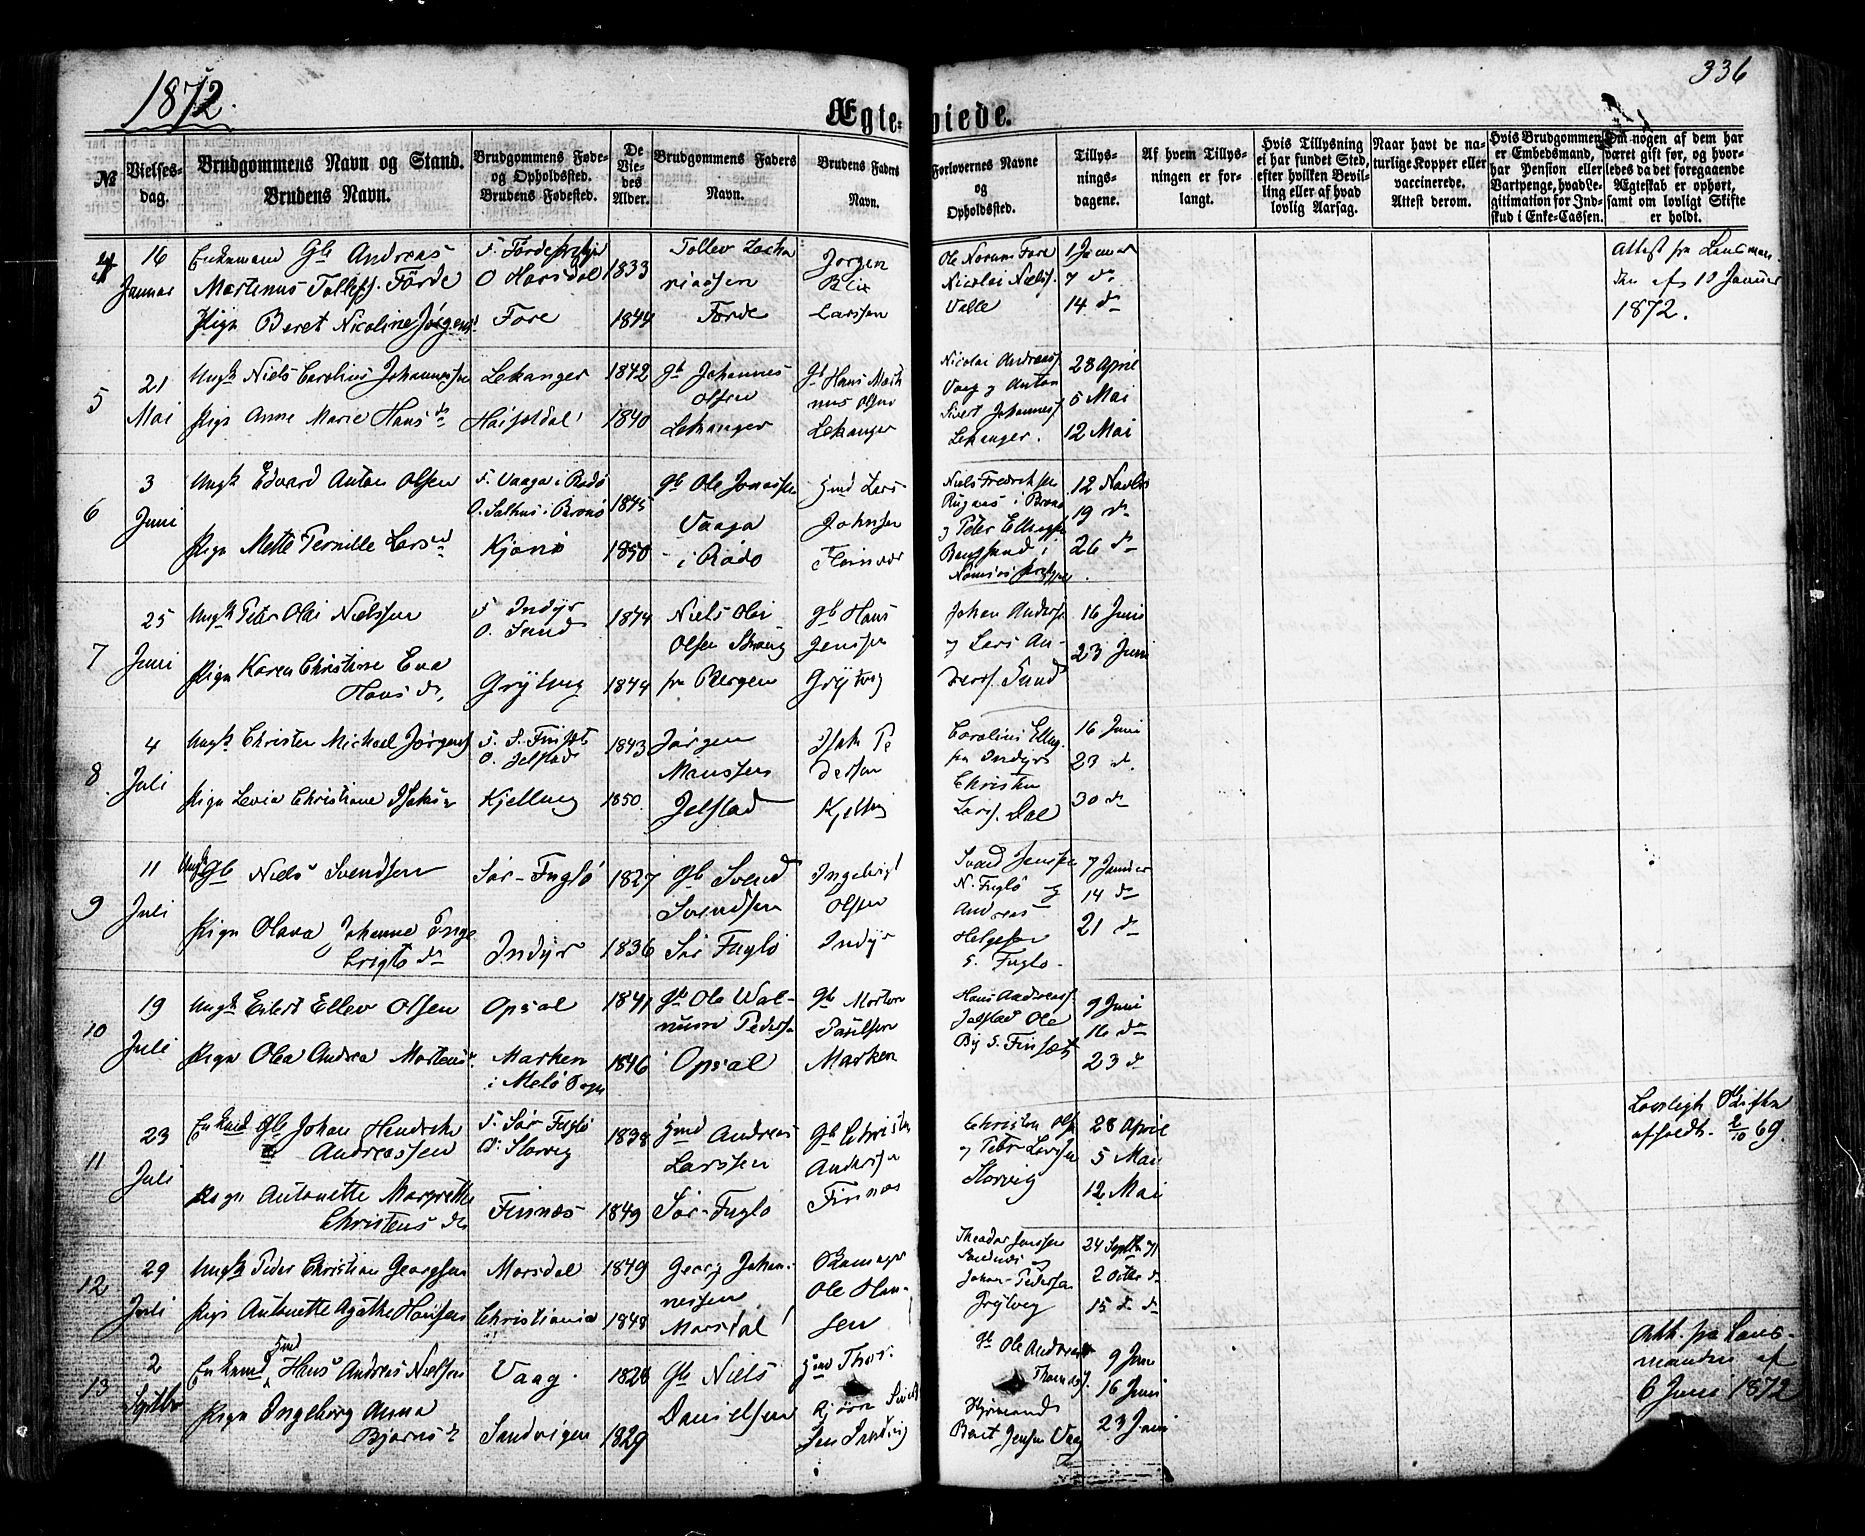 1872.
336
Ægteviede.
№
Vielses-
dag.
Brudgommens Navn og Stand.
Brudens Navn.
Brudgommens Føde-
og Opholdssted.
Brudens Fødested.
De
Vie-
des
Alder.
Brudgommens Faders
Navn.
Brudens Faders
Navn.
Forlovernes Navne
og
Opholdssted.
Tillys-
nings-
dagene.
Af hvem Tillys-
ningen er for-
langt.
Hvis Tillysning
ei har fundet Sted,
efter hvilken Bevil-
ling eller af hvad
lovlig Aarsag.
Naar havt de na-
turlige Kopper eller
vaccinerede.
Attest derom.
Hvis Brudgommen
er Embedsmand,
har Pension eller
Vartpenge, hvad Le-
gitimation for Ind-
skud i Enke-Cassen.
Om nogen af dem har
været gift før, og hvor-
ledes da det foregaaende
Ægteskab er ophørt,
samt om lovligt Skifte
er holdt.
4
16
Januar
Enkemand Gb Andreas
Martinus Tollefs. Förde
Pign Beret Nicoline Jörgens
F. Förde
O Horsdal
Fore
1833
1844
Tollev Zacha
riassen
Förde
Jörgen
Blix
Larssen
Ole Fore
Nicolai Niels.
Valle
1 Januar
7 do
14 do
Attest fra Lensman-
den af 10 Januar
1872.
5
21
Mai
Ungk Niels Carolius Johannessen
Pign Anne Marie Hans dr
Lekanger
1842
1840
Gb Johannes
Olsen
Lekanger
Gb Hans Mart
nus Olsen
Lekanger
Nicolai Andreas
Vaag og Anton
Sivert Johannes
Lekanger.
28 April
5 Mai
12 Mai
6
3
Juni
Ungk Edvard Anton Olsen
Pign Mette Pernille Lars dr
F. Vaaga i Rödö
Kjönö
1845
1850
Gb Ole Jonassen
Vaaga
i Rödö
Hmd Lars
Johnsen
Niels Fredriksen
i Brönö
og Peter Ellingsen
i
19 do
26 do
7
25
Juni
Ungk Peter Olai Nielssen
Pign Karen Christine Eva
Hans dr.
F. Indyr
O. Sund
Grytvig
1844
1844
Niels Olai
Olsen
fra Bergen
Gb Hans
Jenssen
Grytvig
Johan Anders
og Lars An-
ders. Sund
16 Juni
23 Juni
8
4
Juli
Ungk Christen Michael Jörgens
Pign Levia Christiane Isaks dr
F. S. Finset
O. Jelstad
Kjelling
1843
1850.
Jörgen
Monssen
Jelstad
Isak Pe
dersen
Kjelling
Carolius Elling
fra Indyr
Christen
Lars. Dal
16 Juni
23 d.
30 do
9
11
Juli
Ungk Gb Niels Svendsen
Pign Olava Johanne Inge
brigts dr
Sör-Fuglö
Indyr
1827
1836
Gb Svend
Svendsen
Sör Fuglö
Ingebrigt
Olsen
Indyr
Svend Jenssen
N. Fuglö og
Andreas
Helgesen
S. Fuglö.
7 Januar
14 do
21 do
10
19
Juli
Ungk Eilert Ellev Olsen
Pign Olea Andrea Mortens
Opsal
Marken
i Melö Sogn
1841
1846
Gb Ole Wal-
num Peders.
Opsal
Gb Morten
Paulsen
Marken
Hans Andreas
Jelstad Ole
By S. Finset
9 Juni
16 do
23 d
11
23
Juli
Enkmd Gb Johan Hendrik
Andreassen
Pign Antonette Margrethe
Christens dr
F. Sör Fuglö
O. Storvig
Finnes
1838
1849
Hmd Andreas
Larssen
Sör-Fuglö
Gb Christen
Andersen
Finnes
Christen Ols
og Peter Larsen
Storvig
28 April
5 Mai
12 Mai
Lovligt Skifte
afholdt 69.
12
29
Juli
Ungk Peder Christian Georgsen
Pign Antonette Agathe Hansen
Morsdal
Christiania
1849
1848
Georg Johan-
nessen
Morsdal
Skomager
Ole Han-
sen
Theodor Jenssen
Johan Pedersen
Grytvig
24 Septbr 71
2 Octbr do
15 do do
13
2
Septbr
Enkmd Hmd Hans Andreas Nielsen
Pign Ingeborg Anna
Bjørns dr
Vaag.
Sandvigen
1828
1829
Gb Niels
Danielsen
Hmd Thor
Gb Ole Andreas
Thomas.
Berit Jensen Vaag
9 Juni
16 Juni
23 Juni
Att. fra Lens-
manden af
6 Juni 1872